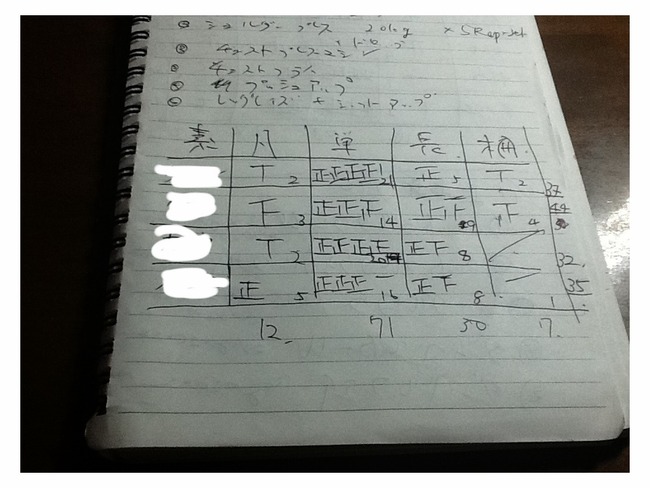 ショルダープレス 20kg × 5Rep-set
チェストプレスマシン
チェストフライ
プッシュアップ
レッグレイズ + シットアップ
素 凡 単 長
T 2 正正正正 21 正 5 T 2 37
F 3 正正F 14 正F 9 F 4
T 2 正正正正 20 正F 8 32
正 5 正正正一 16 正F 8 1 35
12. 71 30 7.